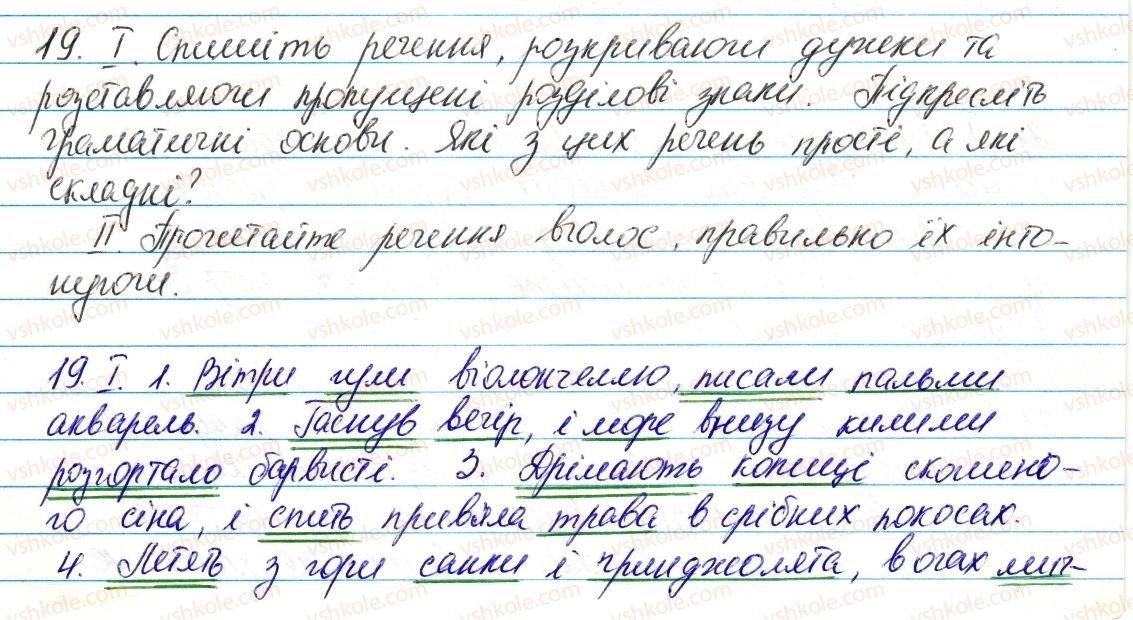 19. I. Спишіть речення, розкриваючи дужки та
розставляючи пропущені розділові знаки. Підкресліть
граматичні основи. Які з цих речень прості, а які
складні?
II. Прочитайте речення вголос, правильно їх інто-
нуючи.
19. I. 1. Вітри гули віолончеллю, писали пальми
акварель. 2. Гаснув вечір, і море внизу килими
розгортало барвисті. 3. Дрімають копиці скошено-
го сіна, і спить прив'яла трава в срібних покосах.
4. Летять з гори санки і гринджолята, в очах миг-